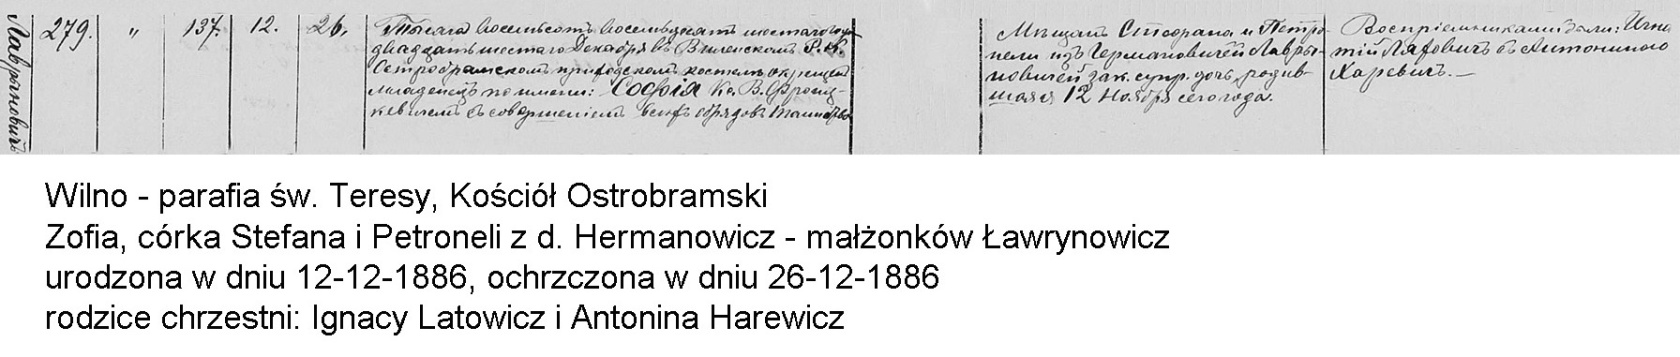 Лавриновичъ
279. " 137. 12. 26.
Тысяча восемьсотъ восемьдесятъ шестаго года
двадцать шестаго Декабря въ Виленскомъ Р. К.
Остробрамскомъ приходскомъ костелѣ окрещенъ
младенецъ по имени: Софія Кс. В. Фронц-
кевичемъ съ совершеніемъ всѣхъ обрядовъ таинства
Мѣщанъ Стефана и Петро-
нели изъ Германовичей Лавры-
новичей зак. супр. дочь, родив-
шаяся 12 Ноября сего года.
Воспріемниками были: Игна-
тій съ Антониною
Харевичъ.—
Wilno - parafia św. Teresy, Kościół Ostrobramski
Zofia, córka Stefana i Petroneli z d. Hermanowicz - małżonków Ławrynowicz
urodzona w dniu 12-12-1886, ochrzczona w dniu 26-12-1886
rodzice chrzestni: Ignacy Latowicz i Antonina Harewicz